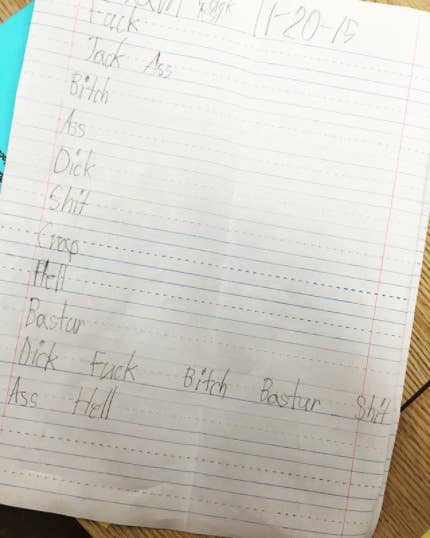 11-20-15
Fuck
Jack Ass
Bitch
Ass
Dick
Shit
Crap
Hell
Bastur
Dick Fuck Bitch Bastur Shit
Ass Hell